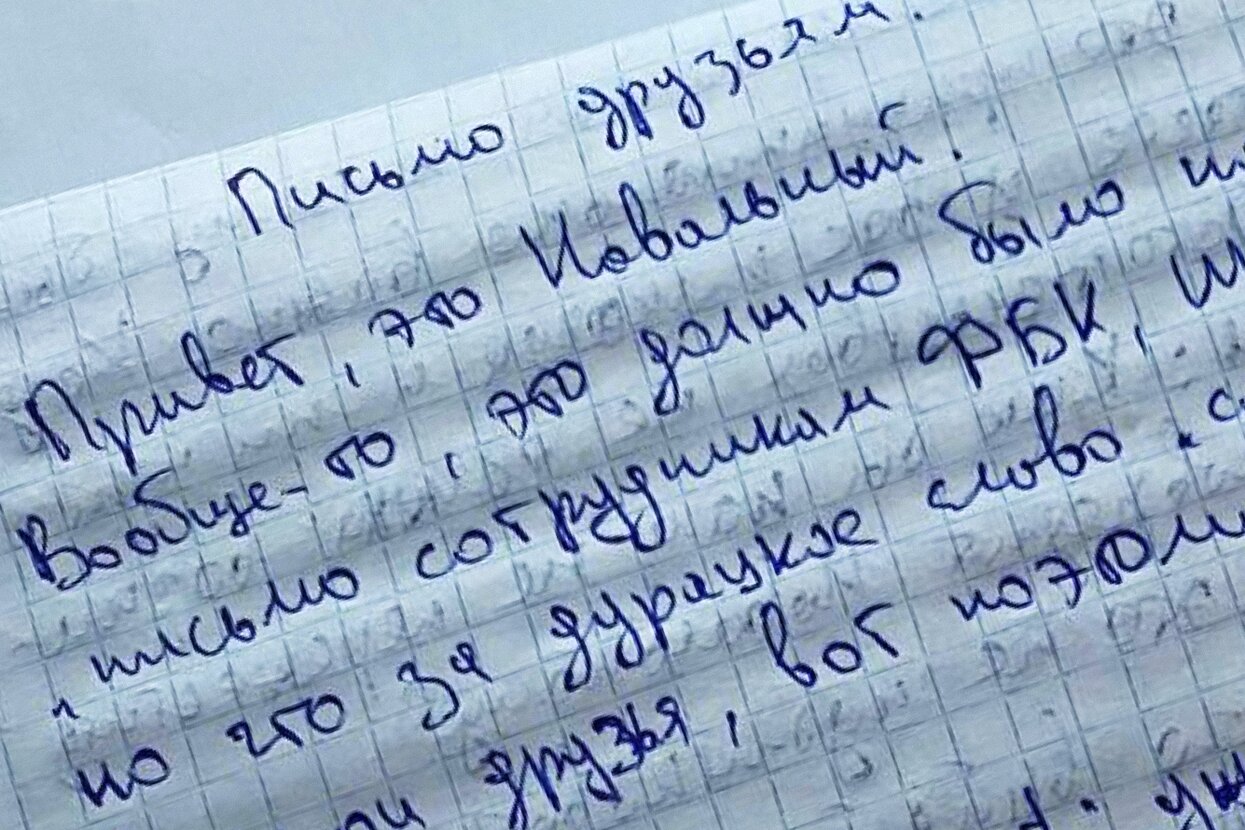 Письмо друзьям.
Привет, это Навальный.
Вообще-то, это должно было
"письмо сотрудникам ФБК,
но что за дурацкое слово
друзья, вот поэтому